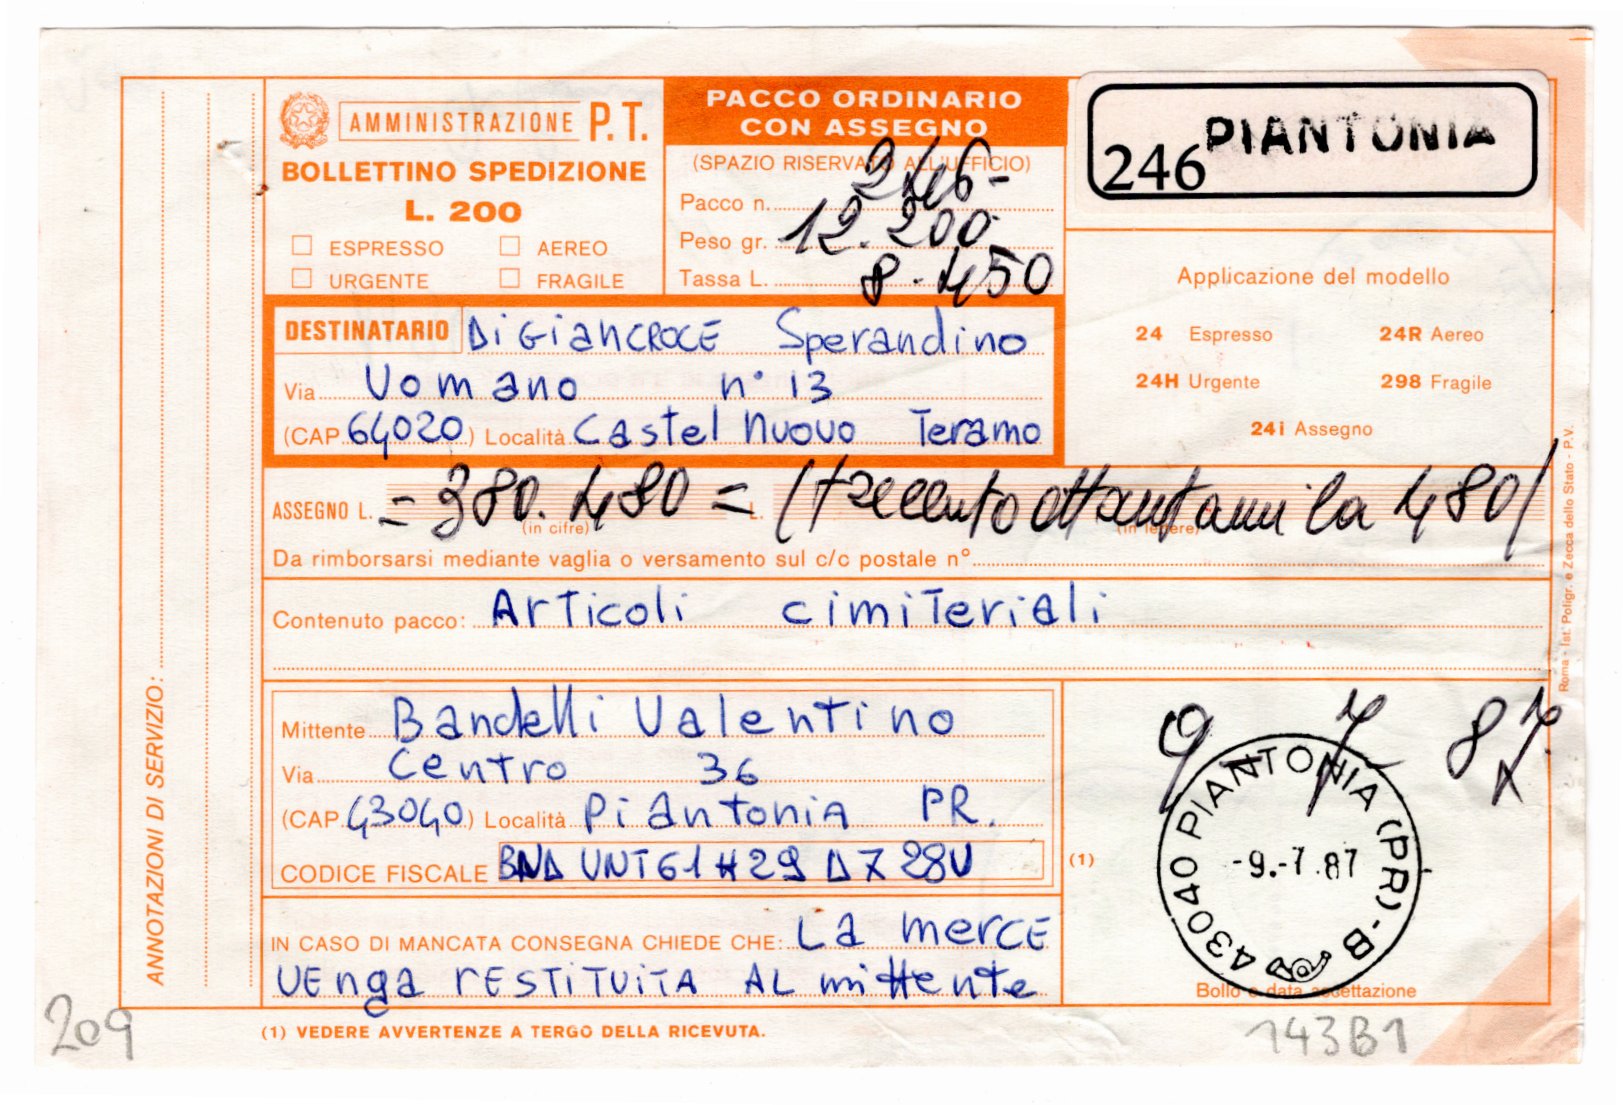 AMMINISTRAZIONE P.T.
BOLLETTINO SPEDIZIONE
L. 200
ESPRESSO AEREO
URGENTE FRAGILE
PACCO ORDINARIO
CON ASSEGNO
(SPAZIO RISERVATO ALL'UFFICIO)
Pacco n. 246-
Peso gr. 12.200
Tassa L. 8.450
246 PIANTONIA
Applicazione del modello
24 Espresso 24R Aereo
24H Urgente 298 Fragile
24i Assegno
DESTINATARIO Di GiANCROCE Sperandino
Via Vomano n° 13
(CAP 64020) Località Castel Nuovo Teramo
ASSEGNO L. =380.480= L. (trecentoottantamila 480)
(in cifre) (in lettere)
Da rimborsarsi mediante vaglia o versamento sul c/c postale n°
Contenuto pacco: Articoli cimiteriali
Mittente Bandelli Valentino
Via Centro 36
(CAP 43040) Località Piantonia PR.
CODICE FISCALE BND VNT61H29D728V
IN CASO DI MANCATA CONSEGNA CHIEDE CHE: La merce
venga restituita al mittente
9 7 87
(1)
43040 PIANTONIA (PR) - B
-9.-7.87
Bollo e data accettazione
ANNOTAZIONI DI SERVIZIO:
Roma - Ist. Poligr. e Zecca dello Stato - P.V.
(1) VEDERE AVVERTENZE A TERGO DELLA RICEVUTA.
209
143B1